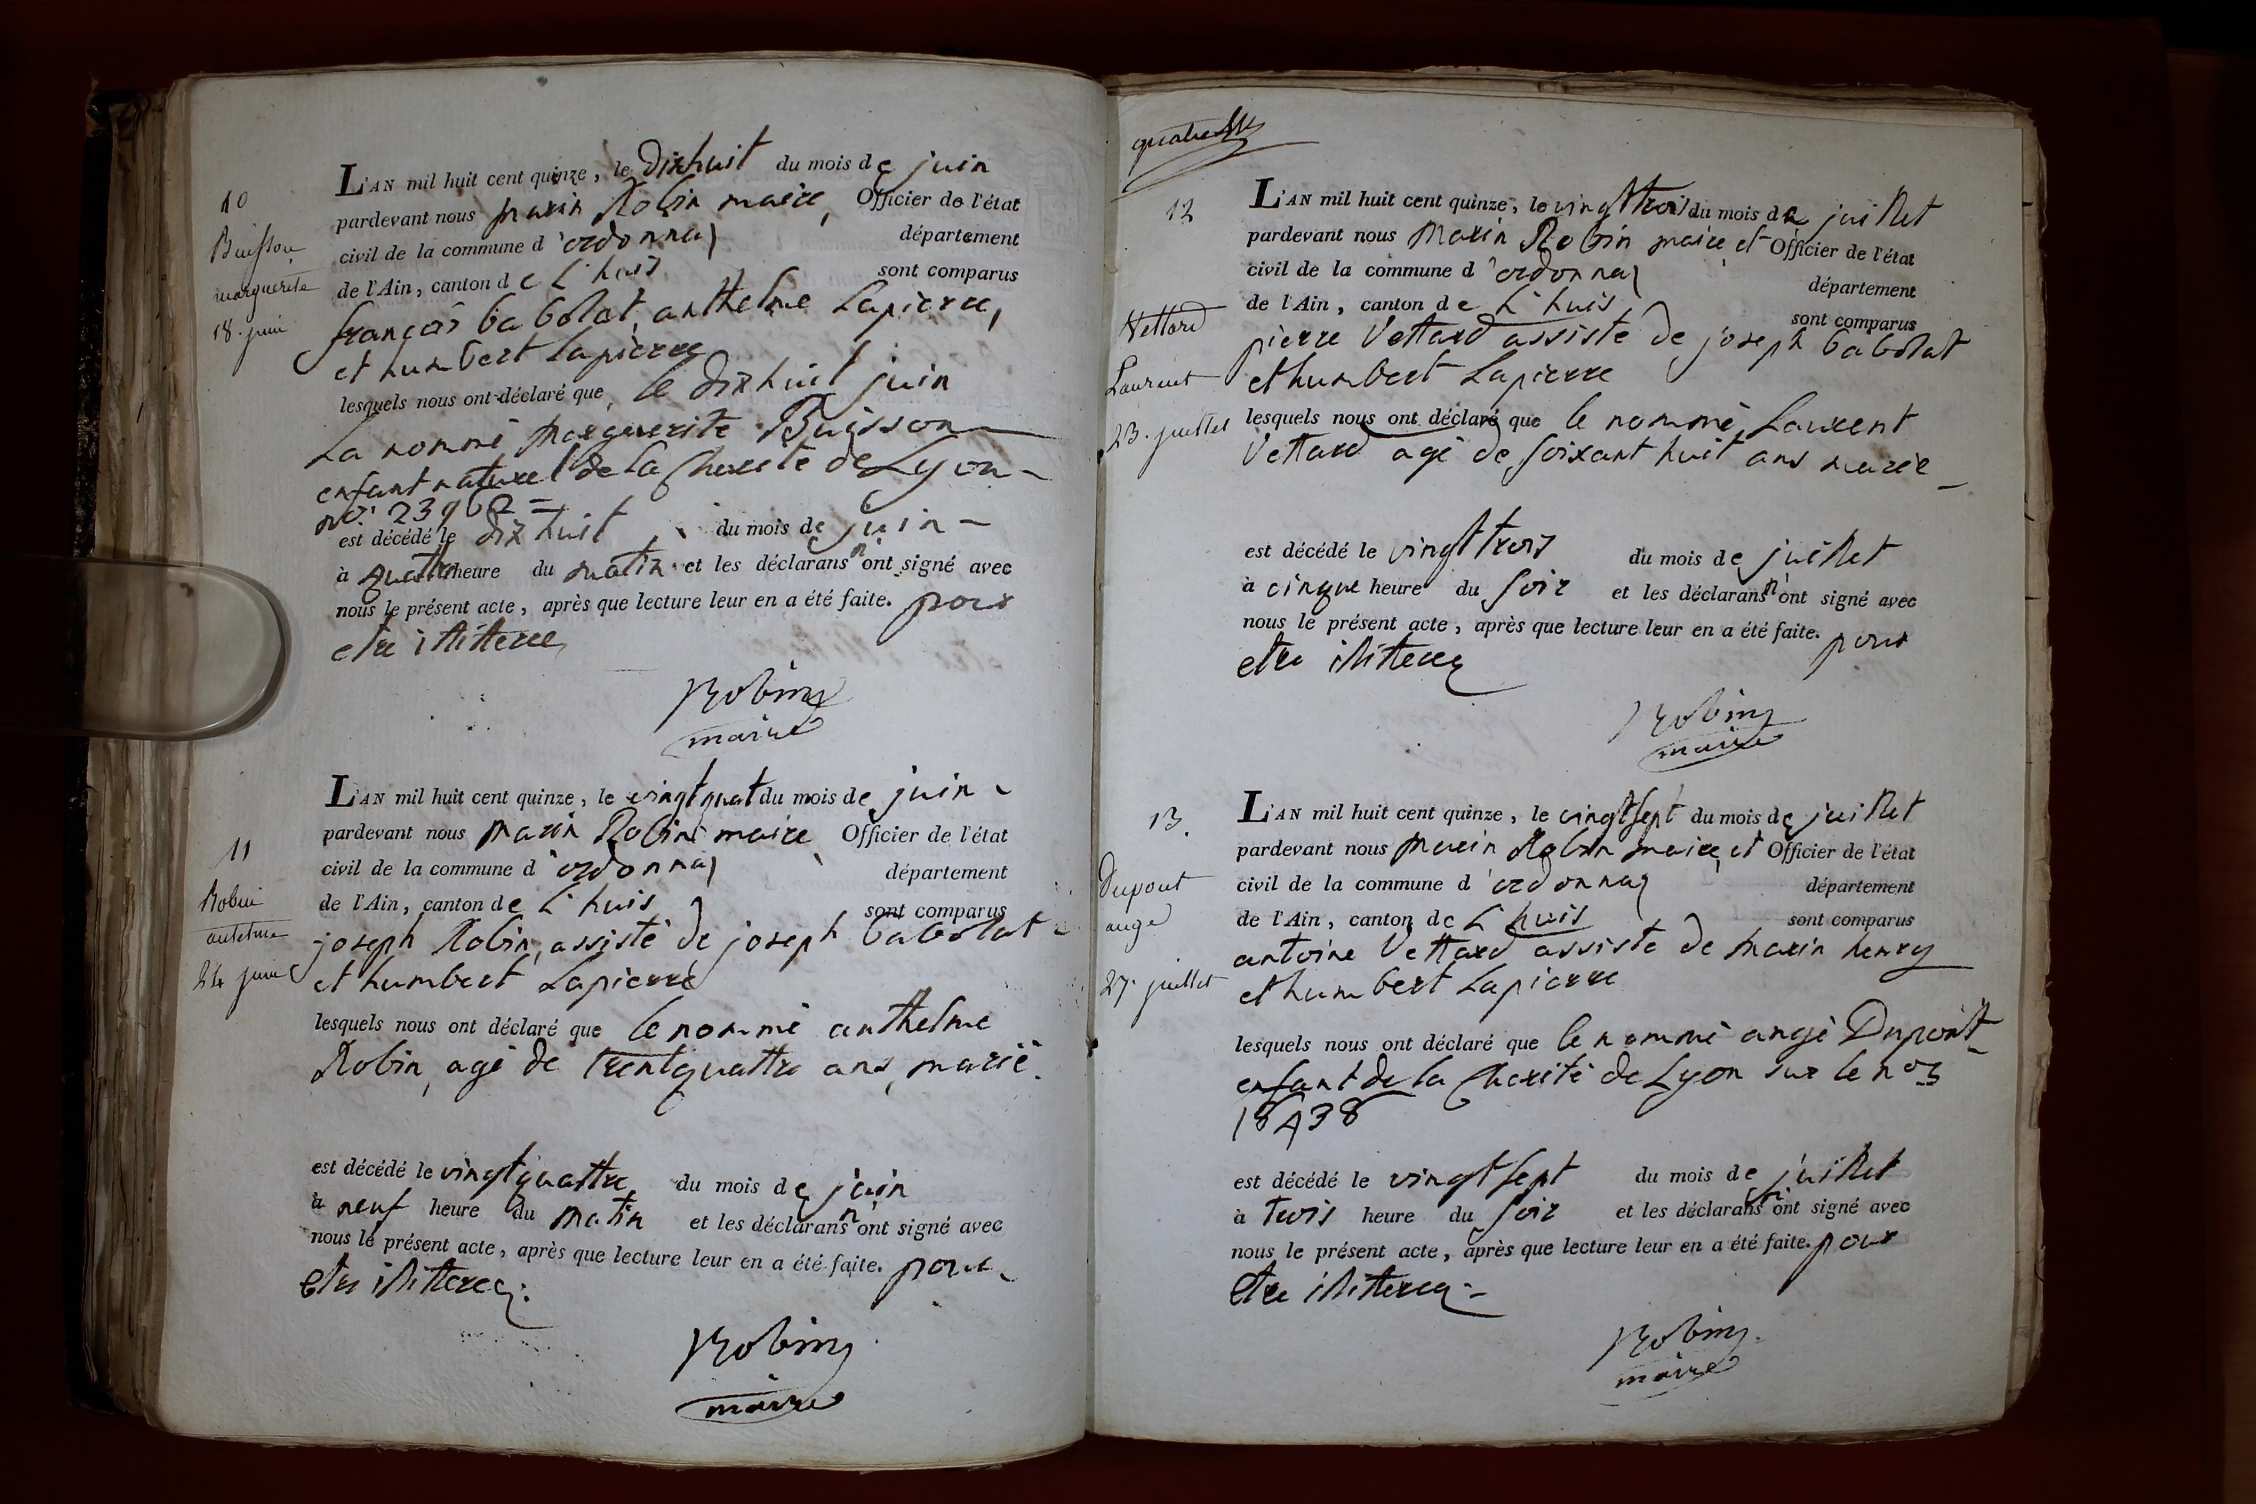 10
Buisson
marguerite
18. juin
L'AN mil huit cent quinze, le dixhuit du mois de juin
pardevant nous marin Robin maire, Officier de l'état
civil de la commune d'ordonnaz département
de l'Ain, canton de L'huis sont comparus
françois babolat, anthelme Lapierre,
et humbert Lapierre
lesquels nous ont déclaré que, le dixhuit juin
La nommé marguerite Buisson
enfant naturel de la Charité de Lyon
no.
est décédé le dix huit du mois de juin
à quattre heure du matin et les déclarans n'ont signé avec
nous le présent acte, après que lecture leur en a été faite. pour
etre illiterée
Robin
maire
11
Robin
antelme
24 juin
L'AN mil huit cent quinze, le vingtquat du mois de juin
pardevant nous marin Robin maire Officier de l'état
civil de la commune d'ordonnaz département
de l'Ain, canton de L'huis sont comparus
joseph Robin, assisté de joseph babolat
et humbert Lapierre
lesquels nous ont déclaré que le nommé anthelme
Robin, agé de trentquattre ans, marié.
est décédé le vingtquattre du mois de juin
à neuf heure du matin et les déclarans n'ont signé avec
nous le présent acte, après que lecture leur en a été faite. pour
etre illiterée.
Robin
maire
12
Vettard
Laurent
23. juillet
L'AN mil huit cent quinze, le vingttrois du mois de juillet
pardevant nous Marin Robin maire et Officier de l'état
civil de la commune d'ordonnaz département
de l'Ain, canton de L'huis sont comparus
pierre Vettard assisté de joseph babolat
et humbert Lapierre
lesquels nous ont déclaré que le nommé Laurent
Vettard agé de soixant huit ans marié
est décédé le vingttrois du mois de juillet
à cinque heure du soir et les déclarans n'ont signé avec
nous le présent acte, après que lecture leur en a été faite. pour
etre illiterée
Robin
maire
13.
Dupont
ange
27. juillet
L'AN mil huit cent quinze, le vingtsept du mois de juillet
pardevant nous marin Robin maire et Officier de l'état
civil de la commune d'ordonnaz département
de l'Ain, canton de L'huis sont comparus
antoine Vettard assisté de marin henry
et humbert Lapierre
lesquels nous ont déclaré que le nommé angé Dupont
enfant de la Charité de Lyon sur le no
18438
est décédé le vingtsept du mois de juillet
à trois heure du soir et les déclarans n'ont signé avec
nous le présent acte, après que lecture leur en a été faite. pour
etre illiterée
Robin
maire